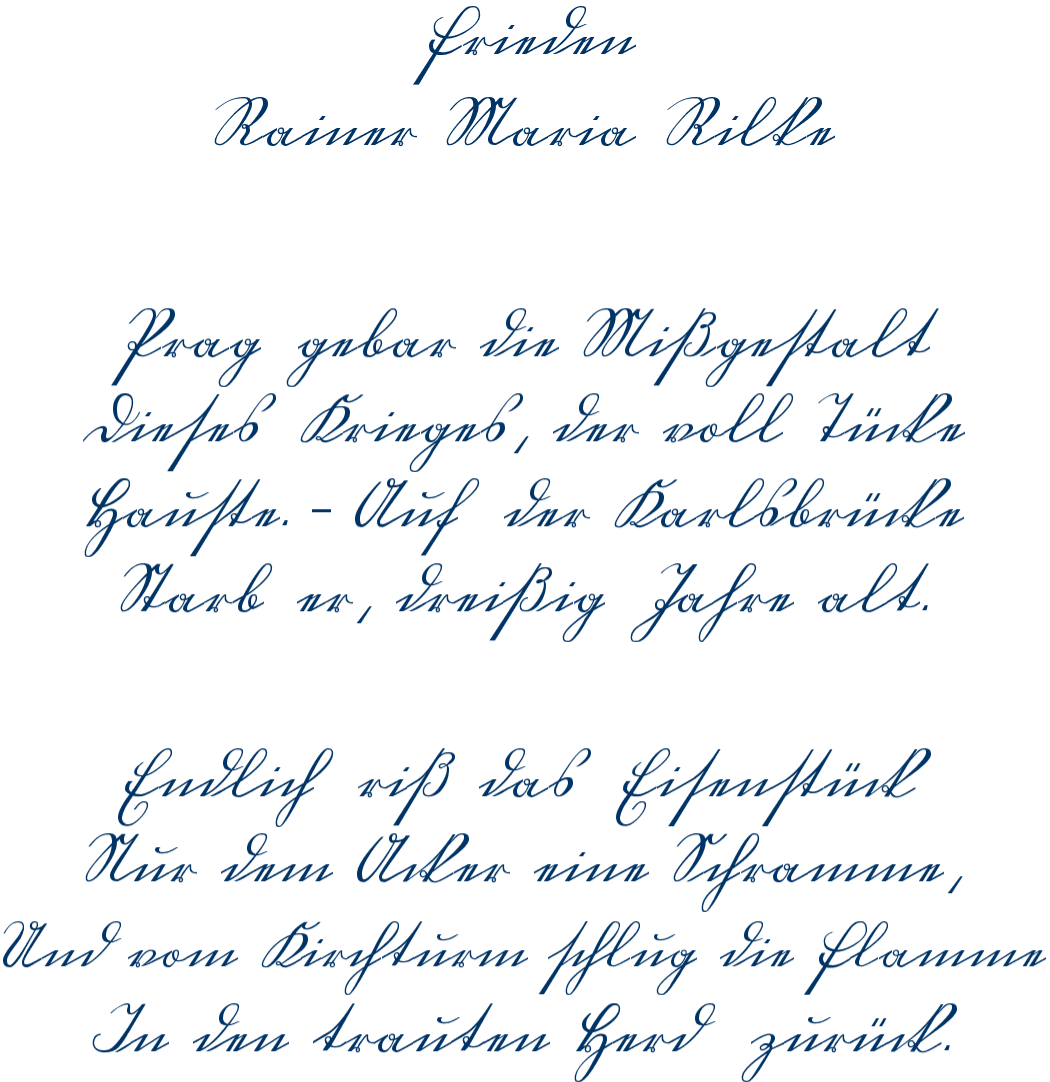 Frieden
Rainer Maria Rilke
Prag gebar die Mißgestalt
Dieses Krieges, der voll Tücke
Hauste. - Auf der Karlsbrücke
Starb er, dreißig Jahre alt.
Endlich riß das Eisenstück
Nur dem Acker eine Schramme,
Und vom Kirchturm schlug die Flamme
In den trauten Herd zurück.